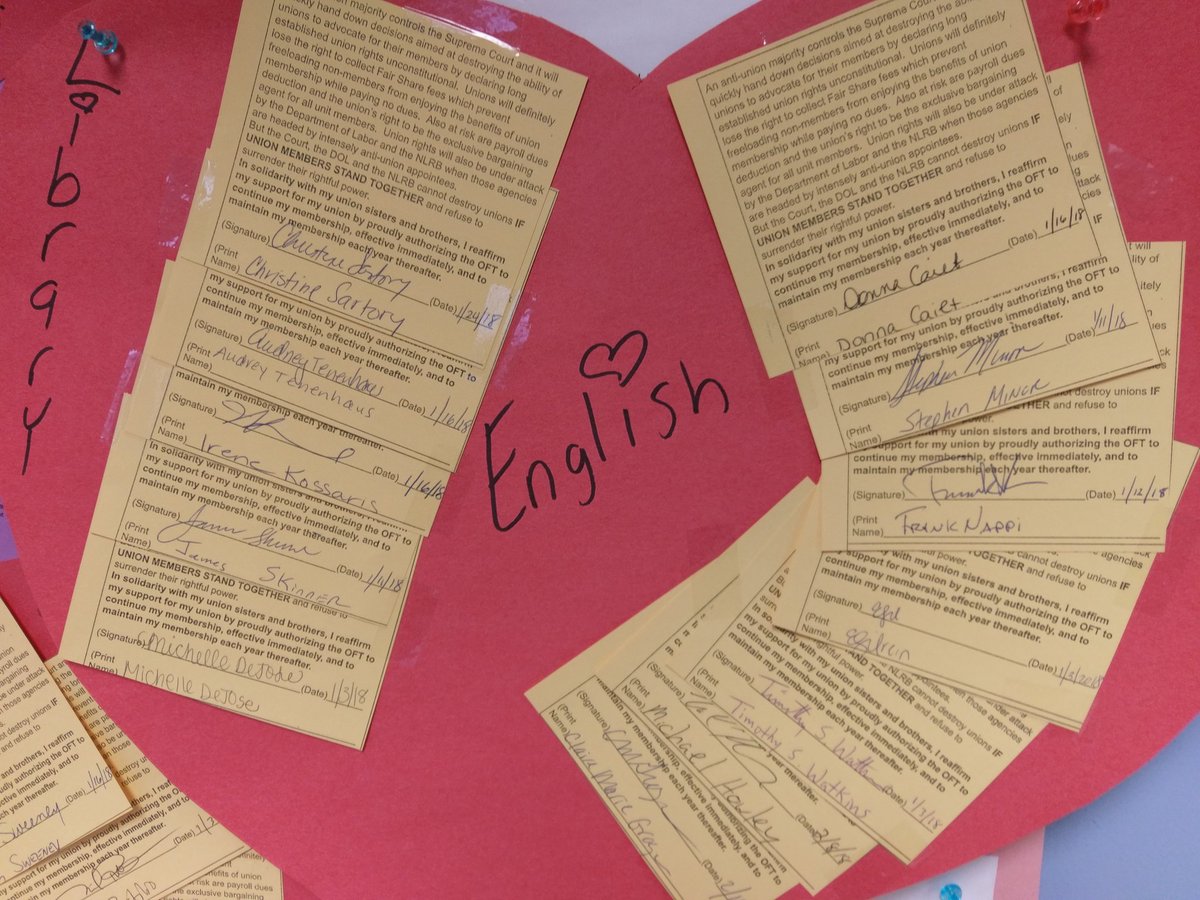 Library
n majority controls the Supreme Court and it will
quickly hand down decisions aimed at destroying the ability of
unions to advocate for their members by declaring long
established union rights unconstitutional. Unions will definitely
lose the right to collect Fair Share fees which prevent
freeloading non-members from enjoying the benefits of union
membership while paying no dues. Also at risk are payroll dues
deduction and the union's right to be the exclusive bargaining
agent for all unit members. Union rights will also be under attack
by the Department of Labor and the NLRB when those agencies
are headed by intensely anti-union appointees.
But the Court, the DOL and the NLRB cannot destroy unions IF
UNION MEMBERS STAND TOGETHER and refuse to
surrender their rightful power.
In solidarity with my union sisters and brothers, I reaffirm
my support for my union by proudly authorizing the OFT to
continue my membership, effective immediately, and to
maintain my membership each year thereafter.
(Signature) Christine Sartory
(Print
Name) Christine Sartory (Date) 1/24/18
my support for my union by proudly authorizing the OFT to
continue my membership, effective immediately, and to
maintain my membership each year thereafter.
(Signature) Audrey Tenenhaus
(Print
Name) Audrey Tenenhaus (Date) 1/16/18
maintain my membership each year thereafter.
(Signature)
(Print
Name) Irene Kossaris (Date) 1/16/18
In solidarity with my union sisters and brothers, I reaffirm
my support for my union by proudly authorizing the OFT to
continue my membership, effective immediately, and to
maintain my membership each year thereafter.
(Signature) James Skinner
(Print
Name) James SKINNER (Date) 1/11/18
UNION MEMBERS STAND TOGETHER and refuse to
surrender their rightful power.
In solidarity with my union sisters and brothers, I reaffirm
my support for my union by proudly authorizing the OFT to
continue my membership, effective immediately, and to
maintain my membership each year thereafter.
(Signature) Michelle DeJose
(Print
Name) Michelle DeJose (Date) 1/3/18
English
An anti-union majority controls the Supreme Court and it will
quickly hand down decisions aimed at destroying the ability of
unions to advocate for their members by declaring long
established union rights unconstitutional. Unions will definitely
lose the right to collect Fair Share fees which prevent
freeloading non-members from enjoying the benefits of union
membership while paying no dues. Also at risk are payroll dues
deduction and the union's right to be the exclusive bargaining
agent for all unit members. Union rights will also be under attack
by the Department of Labor and the NLRB when those agencies
are headed by intensely anti-union appointees.
But the Court, the DOL and the NLRB cannot destroy unions IF
UNION MEMBERS STAND TOGETHER and refuse to
surrender their rightful power.
In solidarity with my union sisters and brothers, I reaffirm
my support for my union by proudly authorizing the OFT to
continue my membership, effective immediately, and to
maintain my membership each year thereafter.
(Signature) Donna Caiet (Date) 1/16/18
(Print
Name) Donna Caiet
my support for my union by proudly authorizing the OFT to
continue my membership, effective immediately, and to
maintain my membership each year thereafter.
(Signature) Stephen Minor (Date) 1/11/18
(Print
Name) Stephen MINOR
my support for my union by proudly authorizing the OFT to
continue my membership, effective immediately, and to
maintain my membership each year thereafter.
(Signature) (Date) 1/12/18
(Print
Name) FRANK NAPPI
UNION MEMBERS STAND TOGETHER and refuse to
surrender their rightful power.
In solidarity with my union sisters and brothers, I reaffirm
my support for my union by proudly authorizing the OFT to
continue my membership, effective immediately, and to
maintain my membership each year thereafter.
(Signature)
(Print
Name) (Date)
STAND TOGETHER and refuse to
rightful power.
In solidarity with my union sisters and brothers, I reaffirm
my support for my union by proudly authorizing the OFT to
continue my membership, effective immediately, and to
maintain my membership each year thereafter.
(Signature) Timothy S Watkins
(Print
Name) Timothy S. Watkins (Date) 1/3/18
(Signature)
(Print
Name) Michael Hawley (Date) 2/8/18
maintain my membership each year thereafter.
(Signature)
(Print
Name) Claira Marie (Date)
Sweeney (Date) 1/16/18
SWEENEY